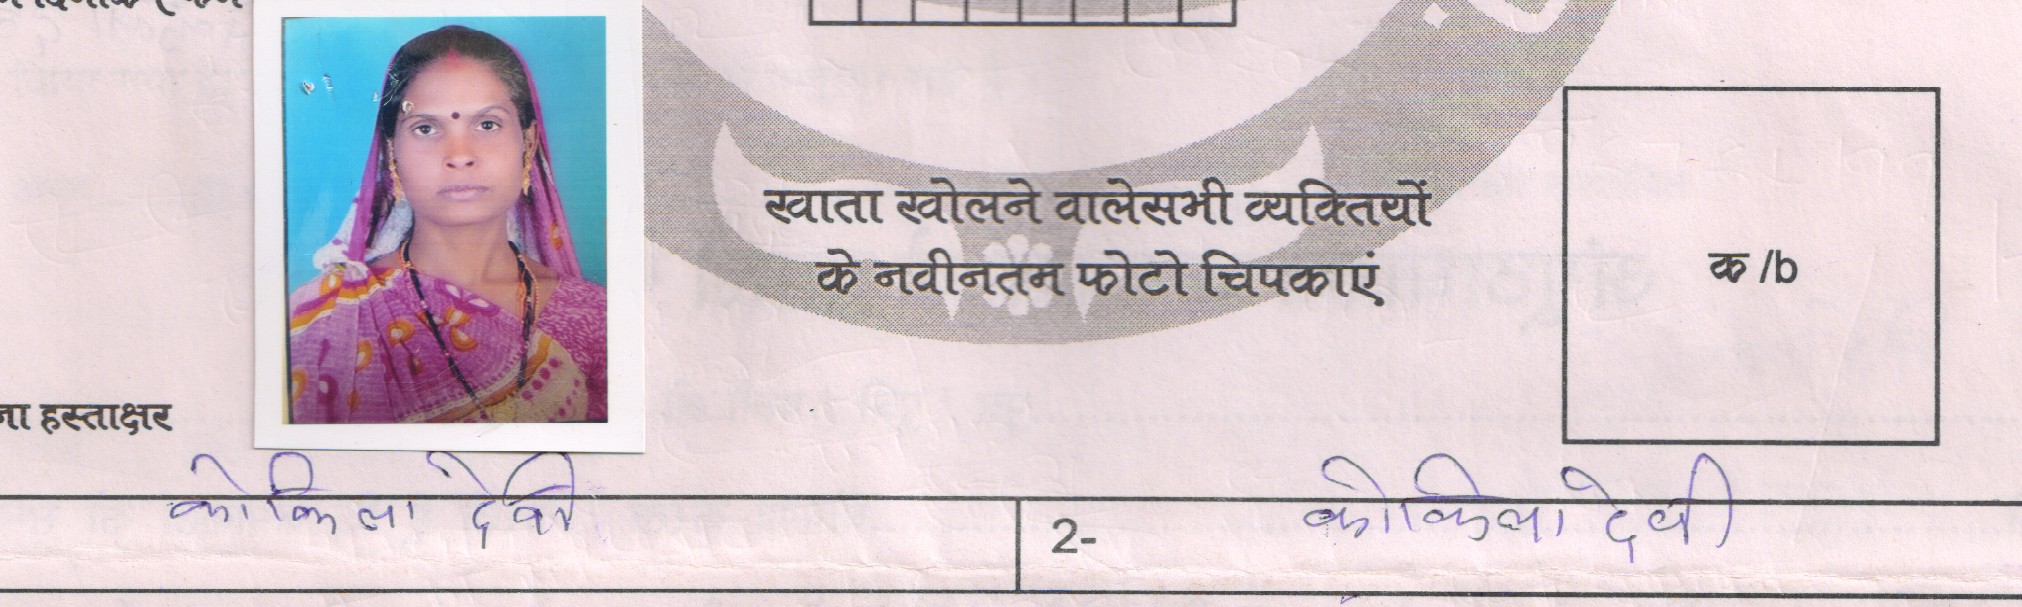 खाता खोलने वालेसभी व्यक्तियों
के नवीनतम फोटो चिपकाएं
क /b
हस्ताक्षर
कोकिला देवी
2- कोकिला देवी